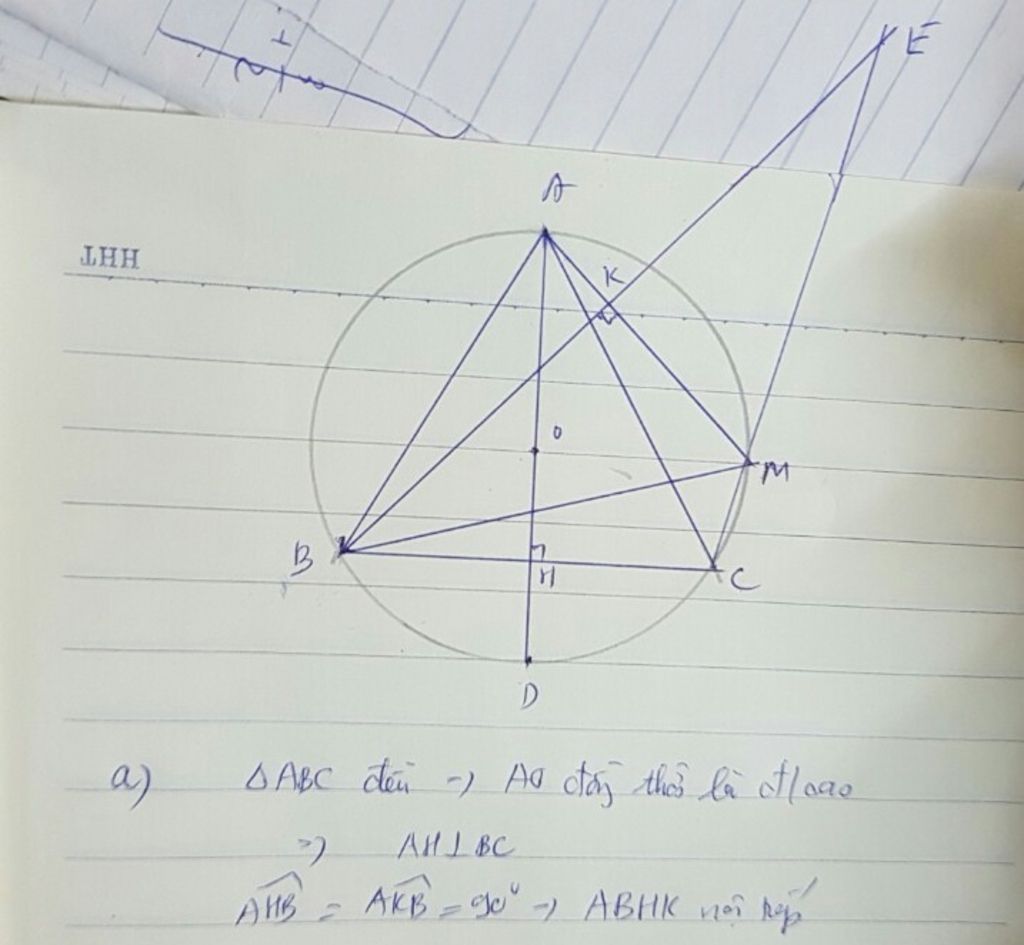 E
A
THH
K
O
M
B
H
C
D
a) ΔABC đều → AO đồng thời là đ/cao
=> AH⊥BC
AHB = AKB = 90° → ABHK nội tiếp